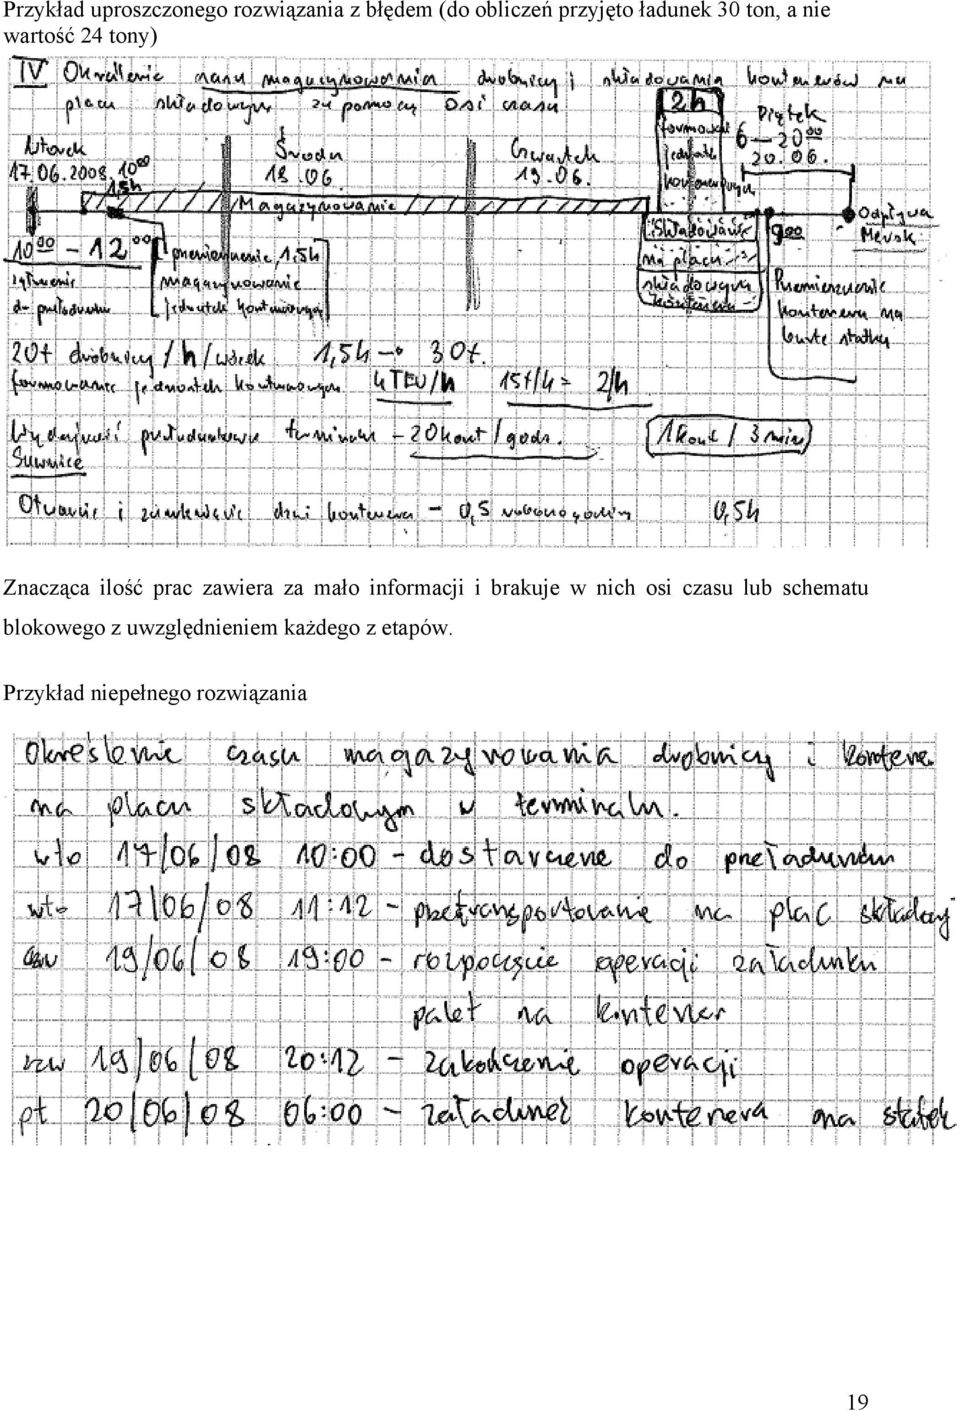 Przykład uproszczonego rozwiązania z błędem (do obliczeń przyjęto ładunek 30 ton, a nie
wartość 24 tony)
IV Określenie czasu magazynowania drobnicy i składowania kontenerów na
placu składowym za pomocą osi czasu
2h
Piątek
Wtorek Środa Czwartek formować 6 - 20 00
17.06.2008. 10 00 18.06. 19.06. 20.06.
1,5h
Magazynowanie
Odpływa
10 00 - 12 00 przemieszczenie, 1,5h Składowanie 9 00 Mersk
zgłoszenie magazynowanie na placu Przemieszczenie
do przeładunku jednostek kontenerowych składowym kontenera na
kontenera burtę statku
20t drobnicy / h / wózek 1,5h → 30t.
formowanie jednostek kontenerowych 4 TEU/h 15t/h = 2/h
Wydajność przeładunkowa terminalu - 20 kont / godz. 1 kont / 3 min
Suwnice
Otwarcie i zamknięcie drzwi kontenera - 0,5 roboczogodziny 0,5h
Znacząca ilość prac zawiera za mało informacji i brakuje w nich osi czasu lub schematu
blokowego z uwzględnieniem każdego z etapów.
Przykład niepełnego rozwiązania
Określenie czasu magazynowania drobnicy i kontene.
na placu składowym w terminalu.
wto 17/06/08 10:00 - dostarczenie do przeładunku
wto 17/06/08 11:12 - przetransportowanie na plac składowy
czw 19/06/08 19:00 - rozpoczęcie operacji załadunku
palet na kontener
czw 19/06/08 20:12 - zakończenie operacji
pt 20/06/08 06:00 - załadunek kontenera na statek
19